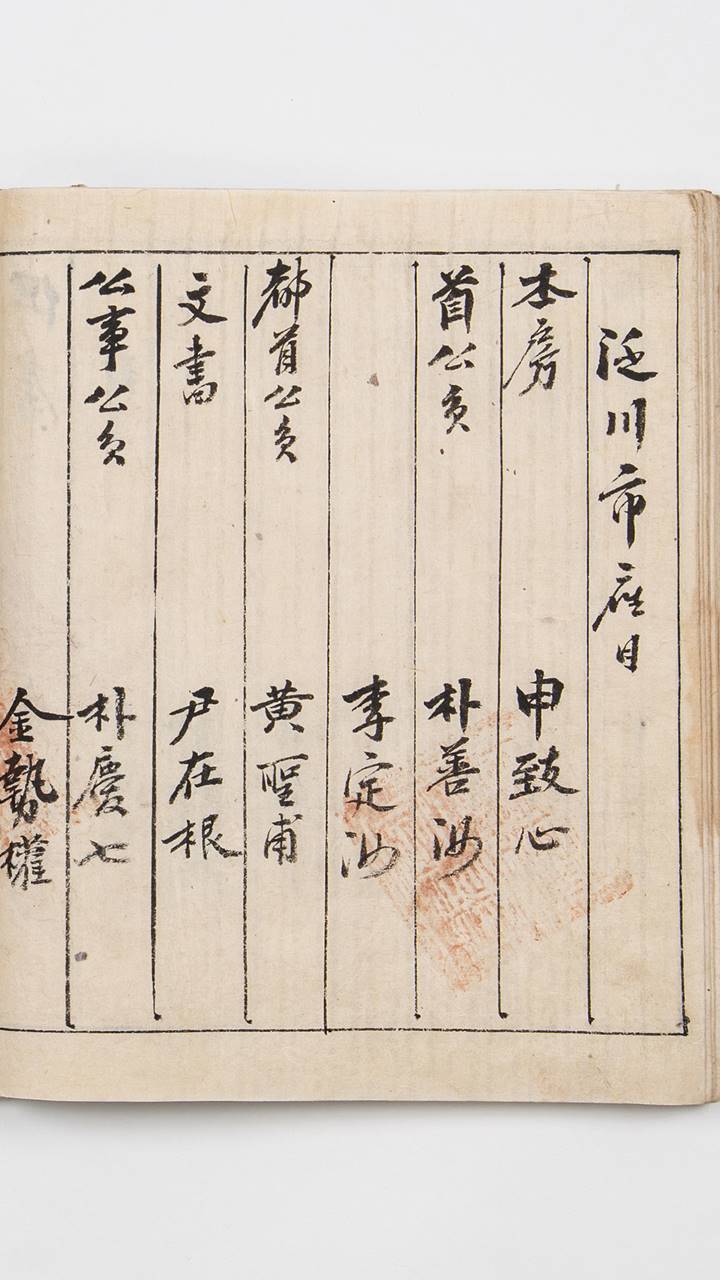 泛川市座目
本房 申致心
首公員 朴善汝
李定汝
都首公員 黃聖甫
文書 尹在根
公事公員 朴慶七
金勢權